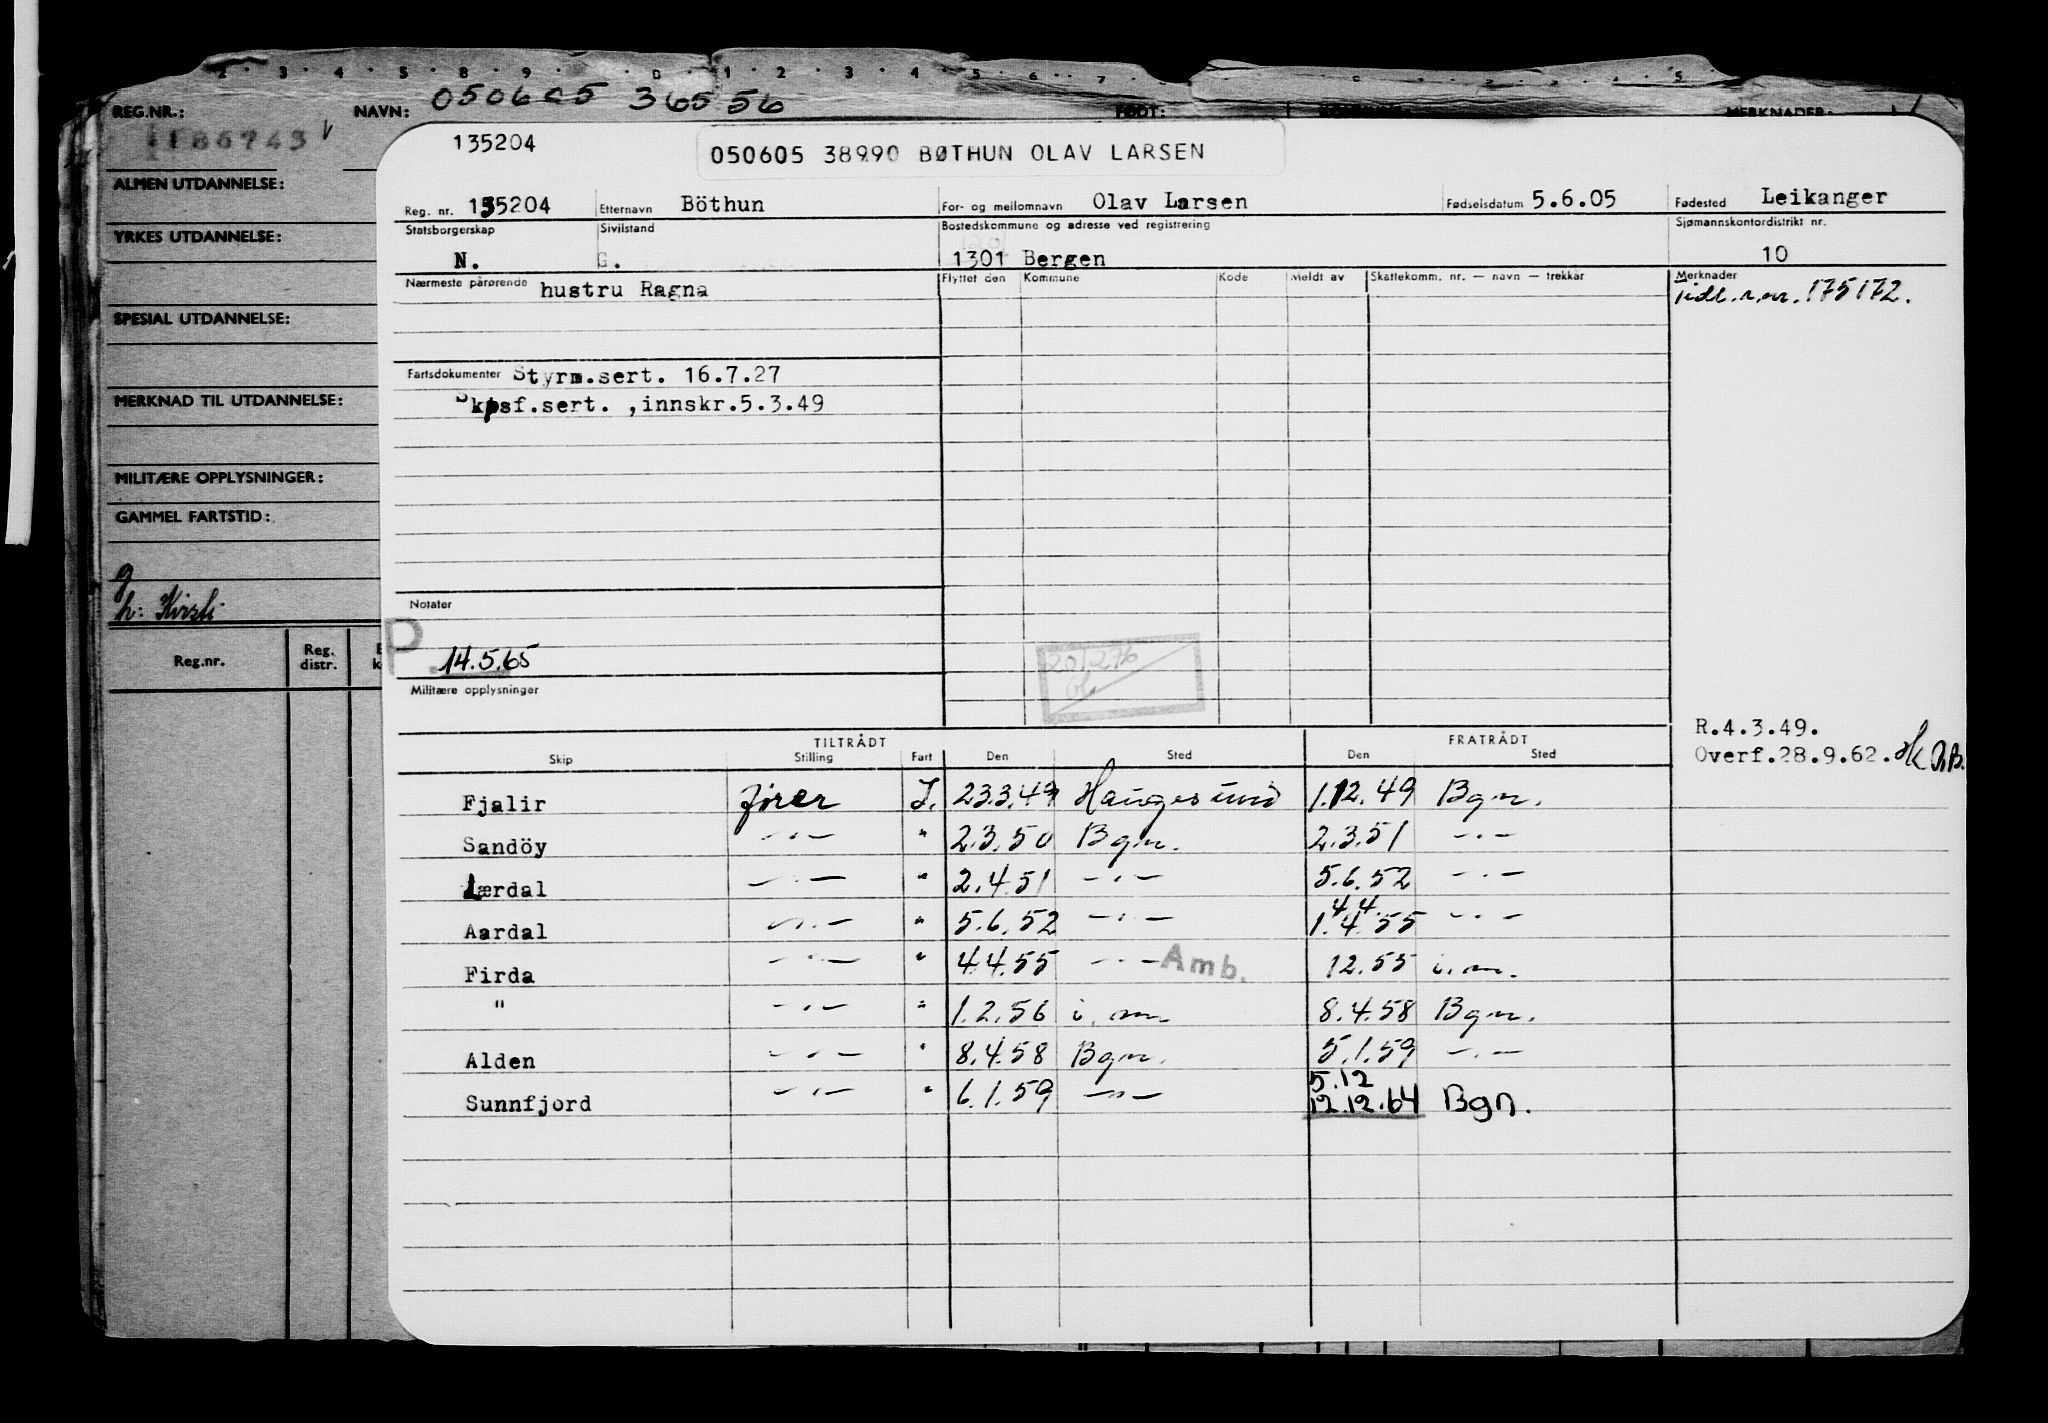 REG.NR.: NAVN: 050605 36556 FØDT: MERKNADER:
ALMEN UTDANNELSE:
YRKES UTDANNELSE:
SPESIAL UTDANNELSE:
MERKNAD TIL UTDANNELSE:
MILITÆRE OPPLYSNINGER:
GAMMEL FARTSTID:
g
h: Kirsti
Reg.nr. Reg. distr.
135204
050605 38990 BØTHUN OLAV LARSEN
Reg. nr. 135204 Etternavn Böthun For- og mellomnavn Olav Larsen Fødselsdatum 5.6.05 Fødested Leikanger
Statsborgerskap Sivilstand Bostedskommune og adresse ved registrering Sjømannskontordistrikt nr.
N. G. 1301 Bergen 10
Nærmeste pårørende hustru Ragna Flyttet den Kommune Kode Meldt av Skattekomm. nr. — navn — trekkår Merknader
Tidl. r.nr. 175172.
Fartsdokumenter Styrm.sert. 16.7.27
Skpsf.sert. ,innskr.5.3.49
Notater
P. 14.5.65
Militære opplysninger
R.4.3.49.
Overf.28.9.62.
TILTRÅDT FRATRÅDT
Skip Stilling Fart Den Sted Den Sted
Fjalir fører I. 23.3.49 Haugesund 1.12.49 Bgn.
Sandöy —·— " 2.3.50 Bgn. 2.3.51 —·—
Lærdal —·— " 2.4.51 —·— 5.6.52 —·—
4.4.
Aardal —·— " 5.6.52 —·— 1.4.55 —·—
Firda —·— " 4.4.55 —·— Amb. 12.55 i.m.
" —·— " 1.2.56 i.m. 8.4.58 Bgn.
Alden —·— " 8.4.58 Bgn. 5.1.59 —·—
5.12
Sunnfjord —·— " 6.1.59 —·— 12.12.64 Bgn.